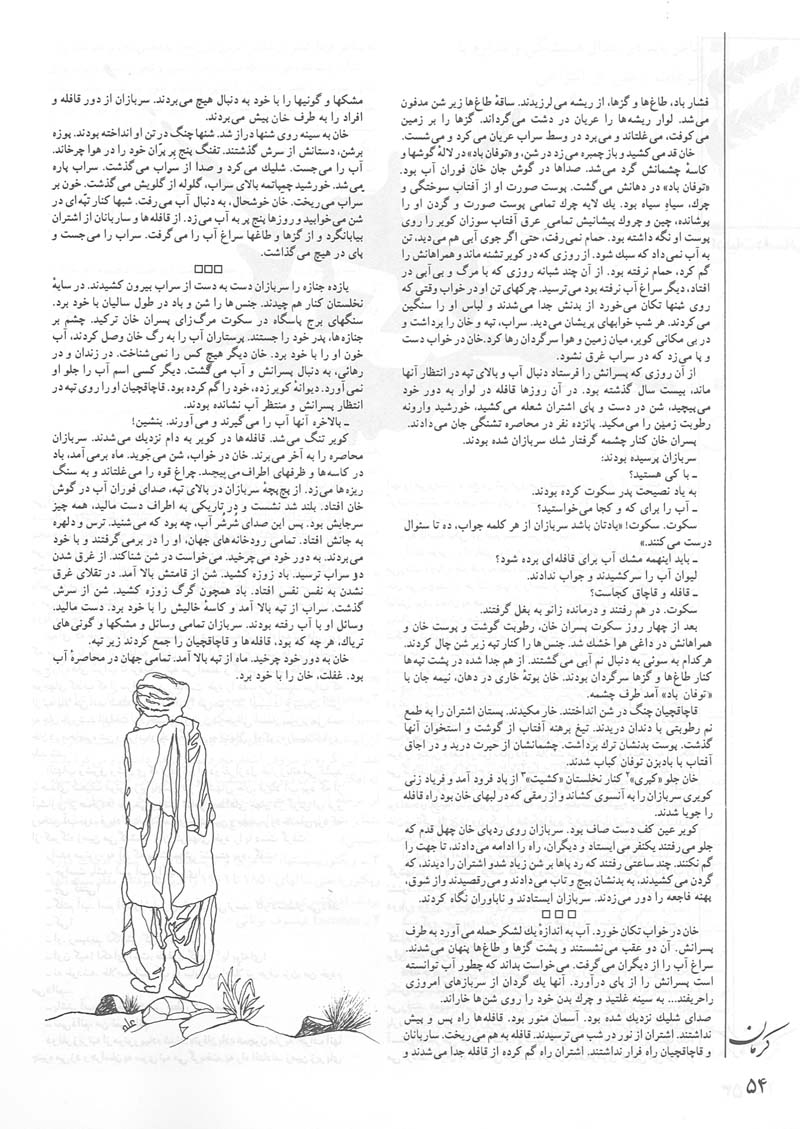 فشار باد، طاغ‌ها و گزها، از ریشه می‌لرزیدند. ساقهٔ طاغ‌ها زیر شن مدفون
می‌شد. لوار ریشه‌ها را عریان در دشت می‌گرداند. گزها را بر زمین
می‌کوفت، می‌غلتاند و می‌برد در وسط سراب عریان می‌کرد و می‌شست.
خان قد می‌کشید و باز چمبره می‌زد در شن، و «توفان باد» در لالهٔ گوشها و
کاسهٔ چشمانش گرد می‌شد. صداها در گوش جان خان فوران آب بود.
«توفان باد» در دهانش می‌گشت. پوست صورت او از آفتاب سوختگی و
چرك، سیاهِ سیاه بود. یك لایه چرك تمامی پوست صورت و گردن او را
پوشانده، چین و چروك پیشانیش تمامی عرق آفتاب سوزان کویر را روی
پوست او نگه داشته بود. حمام نمی‌رفت، حتی اگر جوی آبی هم می‌دید، تن
به آب نمی‌داد که سبك شود. از روزی که در کویر تشنه ماند و همراهانش را
گم کرد، حمام نرفته بود. از آن چند شبانه روزی که با مرگ و بی‌آبی در
افتاد، دیگر سراغ آب نرفته بود می‌ترسید. چرکهای تن او در خواب وقتی که
روی شنها تکان می‌خورد از بدنش جدا می‌شدند و لباس او را سنگین
می‌کردند. هر شب خوابهای پریشان می‌دید. سراب، تپه و خان را برداشت و
در بی مکانی کویر، میان زمین و هوا سرگردان رها کرد.خان در خواب دست
و پا می‌زد که در سراب غرق نشود.
از آن روزی که پسرانش را فرستاد دنبال آب و بالای تپه در انتظار آنها
ماند، بیست سال گذشته بود. در آن روزها قافله در لوار به دور خود
می‌پیچید، شن در دست و پای اشتران شعله می‌کشید، خورشید وارونه
رطوبت زمین را می‌مکید. پانزده نفر در محاصره تشنگی جان می‌دادند.
پسران خان کنار چشمه گرفتار شك سربازان شده بودند.
سربازان پرسیده بودند:
ـ با کی هستید؟
به یاد نصیحت پدر سکوت کرده بودند.
ـ آب را برای که و کجا می‌خواستید؟
سکوت. سکوت! «یادتان باشد سربازان از هر کلمه جواب، ده تا سئوال
درست می‌کنند.»
ـ باید اینهمه مشك آب برای قافله‌ای برده شود؟
لیوان آب را سرکشیدند و جواب ندادند.
ـ قافله و قاچاق کجاست؟
سکوت. در هم رفتند و درمانده زانو به بغل گرفتند.
بعد از چهار روز سکوت پسران خان، رطوبت گوشت و پوست خان و
همراهانش در داغی هوا خشك شد. جنس‌ها را کنار تپه زیر شن چال کردند.
هرکدام به سوئی به دنبال نم آبی می‌گشتند. از هم جدا شده در پشت تپه‌ها
کنار طاغ‌ها و گزها سرگردان بودند. خان بوتهٔ خاری در دهان، نیمه جان با
«توفان باد» آمد طرف چشمه.
قاچاقچیان چنگ در شن انداختند. خار مکیدند. پستان اشتران را به طمع
نم رطوبتی با دندان دریدند. تیغ برهنه آفتاب از گوشت و استخوان آنها
گذشت. پوست بدنشان ترك برداشت. چشمانشان از حیرت درید و در اجاق
آفتاب با بادبزن توفان کباب شدند.
خان جلو «کپری»۲ کنار نخلستان «کشیت»۳ از پاد فرود آمد و فریاد زنی
کویری سربازان را به آنسوی کشاند و از رمقی که در لبهای خان بود راه قافله
را جویا شدند.
کویر عین کف دست صاف بود. سربازان روی ردپای خان چهل قدم که
جلو می‌رفتند یکنفر می‌ایستاد و دیگران، راه را ادامه می‌دادند، تا جهت را
گم نکنند. چند ساعتی رفتند که رد پاها بر شن زیاد شدو اشتران را دیدند، که
گردن می‌کشیدند، به بدنشان پیچ و تاب می‌دادند و می‌رقصیدند واز شوق،
پهنه فاجعه را دور می‌زدند. سربازان ایستادند و ناباوران نگاه کردند.
□ □ □
خان در خواب تکان خورد. آب به اندازهٔ یك لشکر حمله می‌آورد به طرف
پسرانش. آن دو عقب می‌نشستند و پشت گزها و طاغ‌ها پنهان می‌شدند.
سراغ آب را از دیگران می‌گرفت. می‌خواست بداند که چطور آب توانسته
است پسرانش را از پای درآورد. آنها یك گردان از سربازهای امروزی
راحریفند... به سینه غلتید و چرك بدن خود را روی شن‌ها خاراند.
صدای شلیك نزدیك شده بود. آسمان منور بود. قافله‌ها راه پس و پیش
نداشتند. اشتران از نور در شب می‌ترسیدند. قافله به هم می‌ریخت. ساربانان
و قاچاقچیان راه فرار نداشتند. اشتران راه گم کرده از قافله جدا می‌شدند و
مشکها و گونیها را با خود به دنبال هیچ می‌بردند. سربازان از دور قافله و
افراد را به طرف خان پیش می‌بردند.
خان به سینه روی شنها دراز شد. شنها چنگ در تن او انداخته بودند. پوزه
برشن، دستانش از سرش گذشتند. تفنگ پنج پر برّان خود را در هوا چرخاند.
آب را می‌جست. شلیك می‌کرد و صدا از سراب می‌گذشت. سراب پاره
می‌شد. خورشید چمباتمه بالای سراب، گلوله از گلویش می‌گذشت. خون بر
سراب می‌ریخت. خان خوشحال، به دنبال آب می‌رفت. شبها کنار تپّه‌ای در
شن می‌خوابید و روزها پنج پر به آب می‌زد. از قافله‌ها و ساربانان از اشتران
بیابانگرد و از گزها و طاغها سراغ آب را می‌گرفت. سراب را می‌جست و
پای در هیچ می‌گذاشت.
□□□
یازده جنازه را سربازان دست به دست از سراب بیرون کشیدند. در سایهٔ
نخلستان کنار هم چیدند. جنس‌ها را شن و باد در طول سالیان با خود برد.
سنگهای برج پاسگاه در سکوت مرگ‌زای پسران خان ترکید. چشم بر
جنازه‌ها، پدر خود را جستند. پرستاران آب را به رگ خان وصل کردند، آب
خون او را با خود برد. خان دیگر هیچ کس را نمی‌شناخت. در زندان و در
رهائی، به دنبال پسرانش و آب می‌گشت. دیگر کسی اسم آب را جلو او
نمی‌آورد. دیوانهٔ کویرزده، خود را گم کرده بود. قاچاقچیان او را روی تپه در
انتظار پسرانش و منتظر آب نشانده بودند.
ـ بالاخره آنها آب را می‌گیرند و می‌آورند. بنشین!
کویر تنگ می‌شد. قافله‌ها در کویر به دام نزدیك می‌شدند. سربازان
محاصره را به آخر می‌برند. خان در خواب، شن می‌جَوید. ماه برمی‌آمد، باد
در کاسه‌ها و ظرفهای اطراف می‌پیچد. چراغ قوه را می‌غلتاند و به سنگ
ریزه‌ها می‌زد. از پچ‌پچهٔ سربازان در بالای تپه، صدای فوران آب در گوش
خان افتاد. بلند شد نشست و در تاریکی به اطراف دست مالید، همه چیز
سرجایش بود. پس این صدای شُرشُر آب، چه بود که می‌شنید. ترس و دلهره
به جانش افتاد. تمامی رودخانه‌های جهان، او را در برمی‌گرفتند و با خود
می‌بردند. به دور خود می‌چرخید. می‌خواست در شن شناکند. از غرق شدن
دو سراب ترسید. باد زوزه کشید. شن از قامتش بالا آمد. در تقلای غرق
نشدن به نفس نفس افتاد. باد همچون گرگ زوزه کشید. شن از سرش
گذشت. سراب از تپه بالا آمد و کاسهٔ خالیش را با خود برد. دست مالید.
وسائل او با آب رفته بودند. سربازان تمامی وسائل و مشکها و گونی‌های
تریاك، هر چه که بود، قافله‌ها و قاچاقچیان را جمع کردند زیر تپه.
خان به دور خود چرخید. ماه از تپه بالا آمد. تمامی جهان در محاصرهٔ آب
بود. غفلت، خان را با خود برد.
کرمان
۵۴